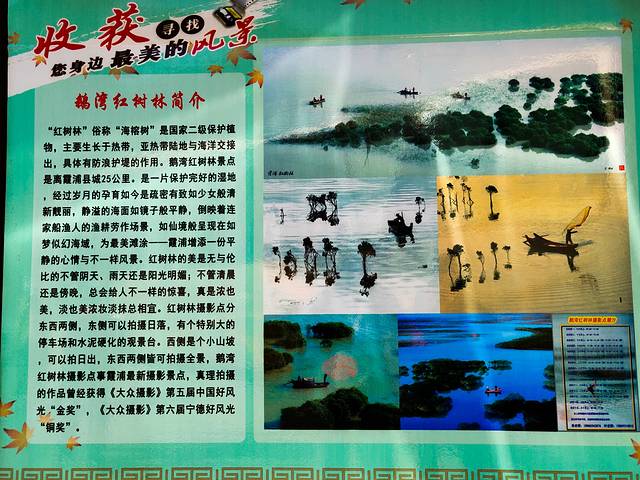 收获 寻找
您身边 最美的风景
鹅湾红树林简介
“红树林”俗称“海榕树”是国家二级保护植
物，主要生长于热带，亚热带陆地与海洋交接
出，具体有防浪护堤的作用。鹅湾红树林景点
是离霞浦县城25公里。是一片保护完好的湿地
，经过岁月的孕育如今是疏密有致如少女般清
新靓丽，静溢的海面如镜子般平静，倒映着连
家船渔人的渔耕劳作场景，如仙境般呈现在如
梦似幻海域，为最美滩涂——霞浦增添一份平
静的心情与不一样风景。红树林的美是无与伦
比的不管阴天、雨天还是阳光明媚；不管清晨
还是傍晚，总会给人不一样的惊喜，真是浓也
美，淡也美浓妆淡抹总相宜。红树林摄影点分
东西两侧，东侧可以拍摄日落，有个特别大的
停车场和水泥硬化的观景台。西侧是个小山坡
，可以拍日出，东西两侧皆可拍摄全景，鹅湾
红树林摄影点事霞浦最新摄影景点，真理拍摄
的作品曾经获得《大众摄影》第五届中国好风
光“金奖”，《大众摄影》第六届宁德好风光
“铜奖”。